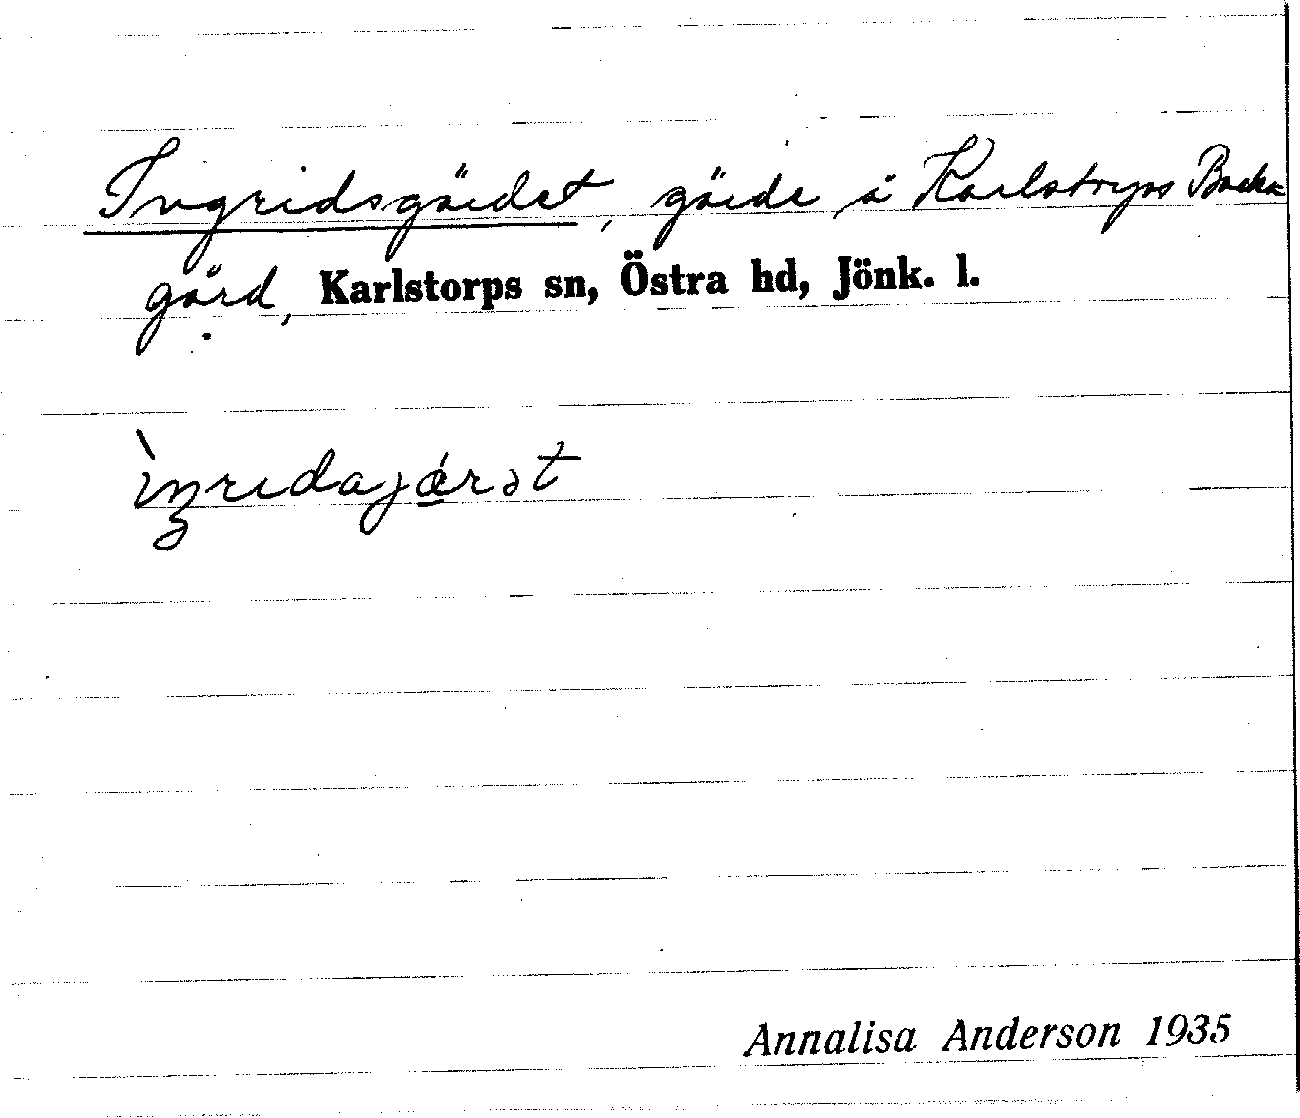 Ingridsgärdet, gärde å Karlstorps Backa
gård, Karlstorps sn, Östra hd, Jönk. l.
ìŋridajǽrət
Annalisa Anderson 1935